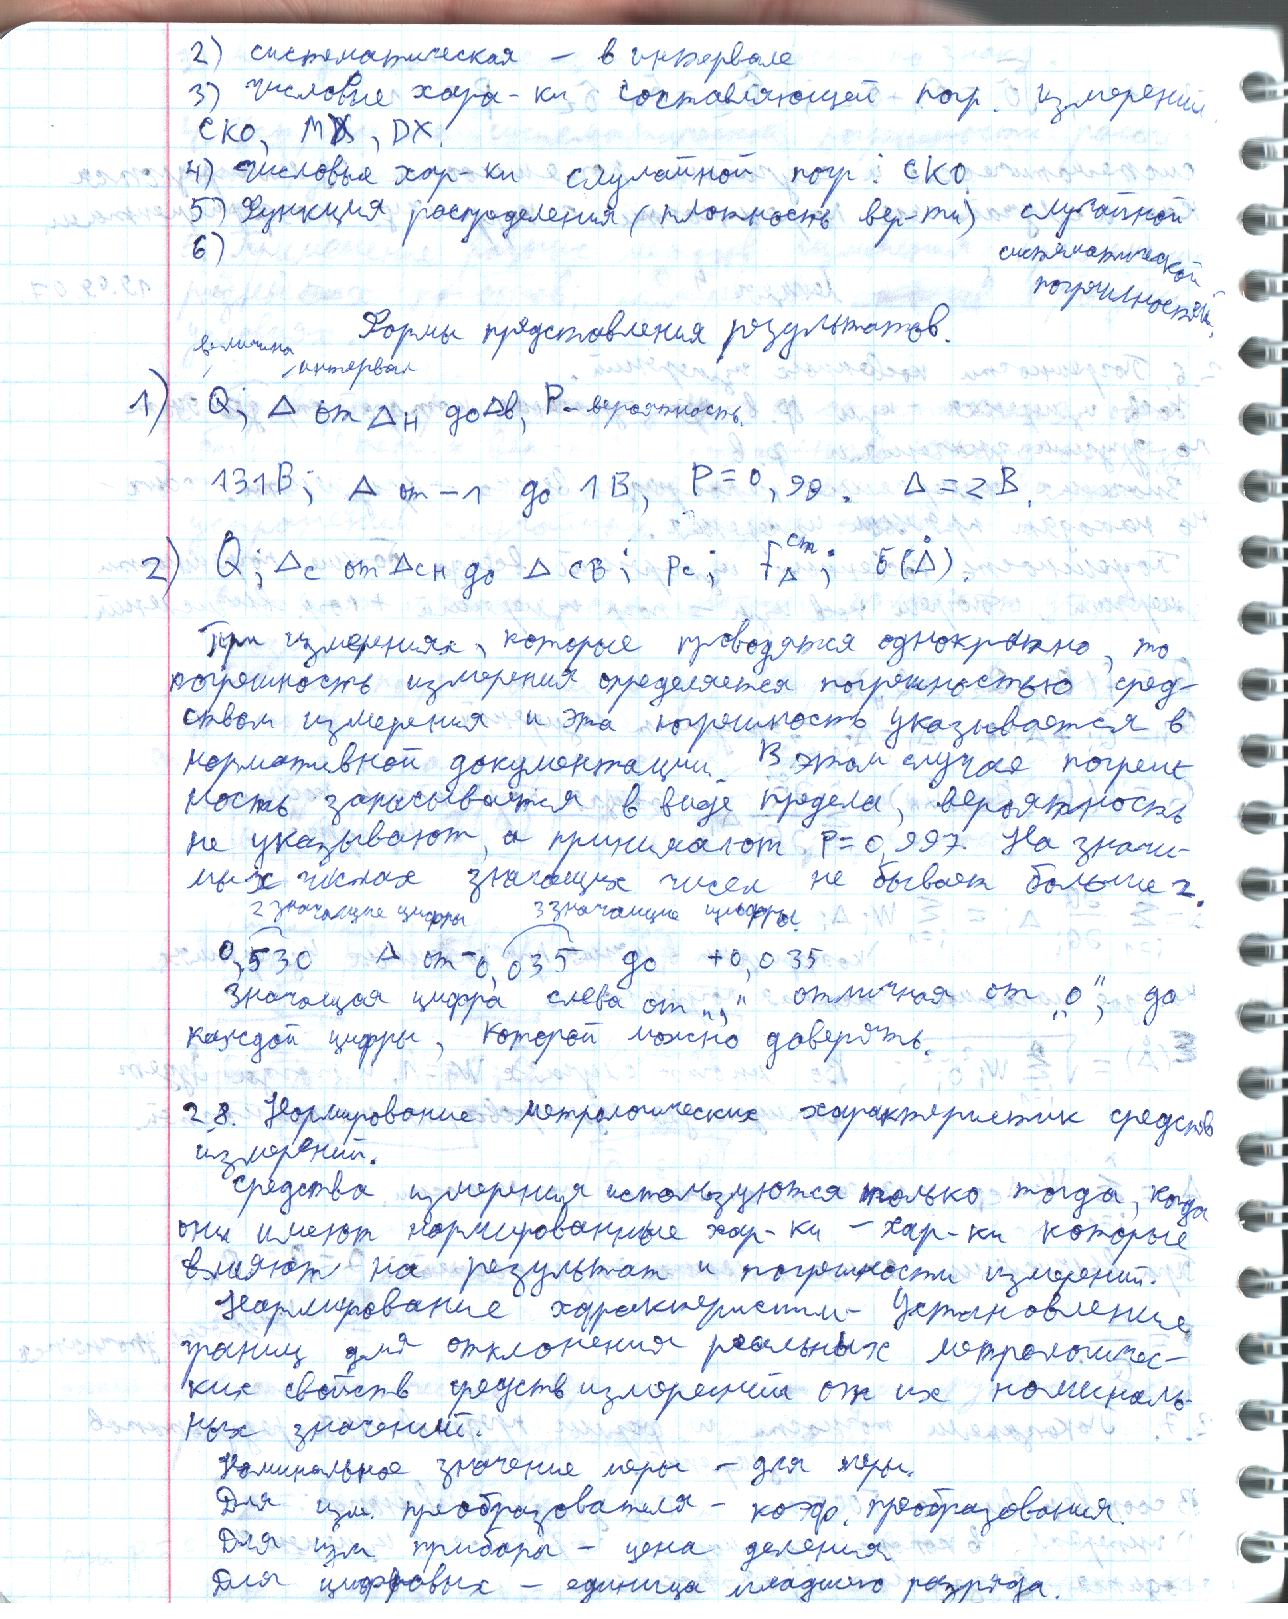 2) систематическая – в интервале
3) Числовые хара-ки составляющей погр. измерений
СКО, MX, DX.
4) Числовые хар-ки случайной погр: СКО.
5) Функция распределения (плотность вер-ти) случайной
6) систематической
погрешностей
Формы представления результатов.
величина интервал
1) Q; Δ от Δн до Δв, P – вероятность.
131В; Δ от –1 до 1В, P=0,99. Δ=2В.
2) Q; Δс от Δсн до Δсв; Pс; fΔ ст.; б(Δ̊).
При измерениях, которые проводятся однократно, то
погрешность измерения определяется погрешностью сред-
ством измерения и эта погрешность указывается в
нормативной документации. В этом случае погреш
ность записывается в виде предела, вероятность
не указывают, а принимают P=0,997. На значи-
мых числах значащих чисел не бывает больше 2.
2 значающие цифры 3 значающие цифры.
0,530 Δ от -0,035 до +0,035
Значащая цифра слева от „,“ отличная от „0“, до
каждой цифры, которой можно доверять.
2.8. Нормирование метрологических характеристик средств
измерений.
Средства измерения используются только тогда, когда
они имеют нормированные хар-ки – хар-ки которые
влияют на результат и погрешности измерений.
Нормирование характеристик – Установление
границ для отклонения реальных метрологичес-
ких свойств средств измерений от их номиналь-
ных значений.
Номинальное значение меры – для меры.
Для изм. преобразователя – коэф. преобразования.
Для изм приборы – цена деления
Для цифровых – единица младшего разряда.